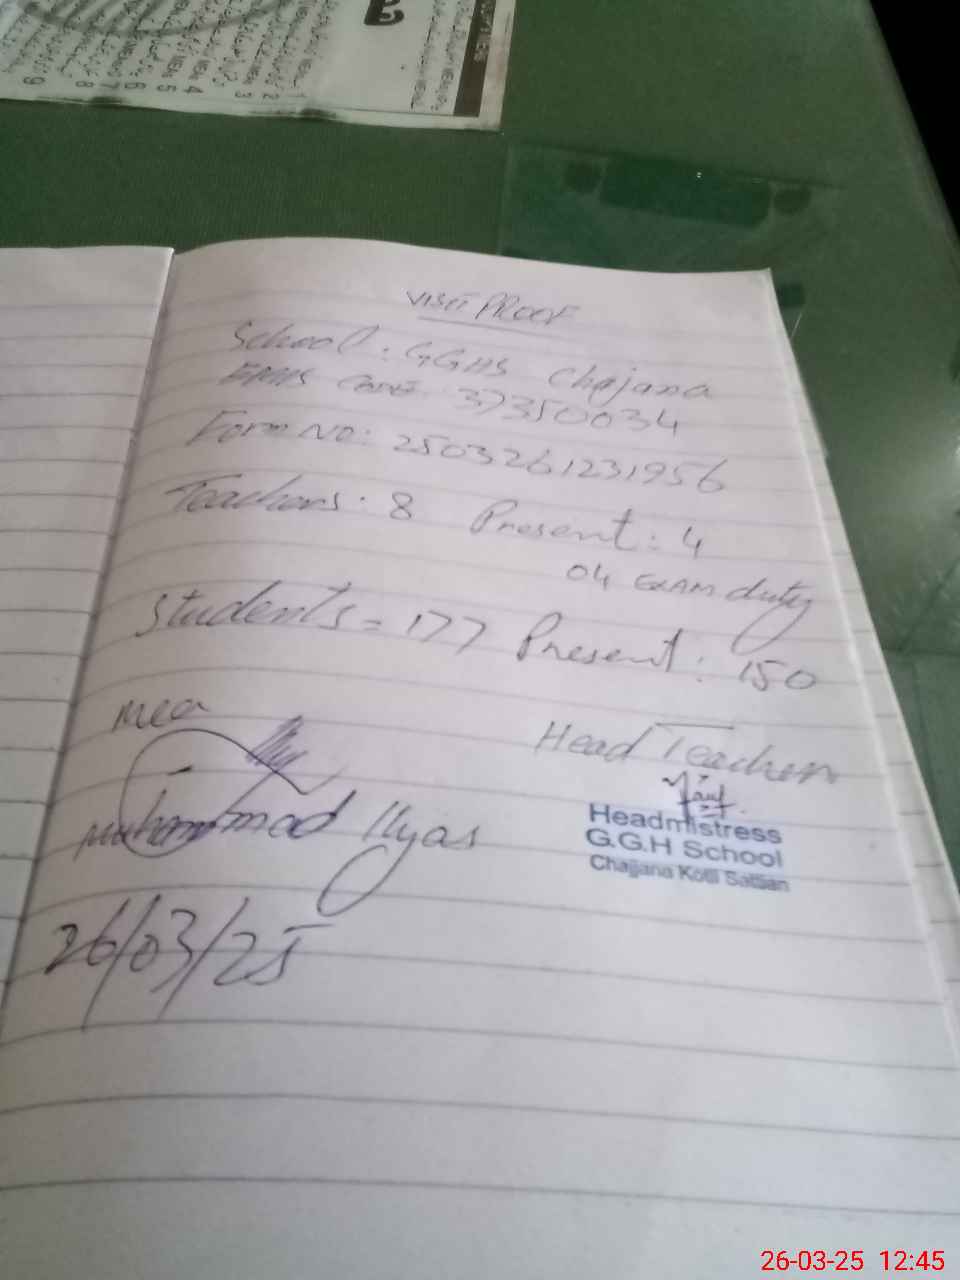 VISIT PROOF
School: GGHS Chajana
EMIS CODE: 37350034
Form No: 2503261231956
Teachers: 8 Present: 4
04 EXAM duty
Students = 177 Present: 150
Mea
Head Teacher
Muhammad Ilyas
Headmistress
G.G.H School
Chajjana Kotli Sattian
26/03/25
26-03-25 12:45